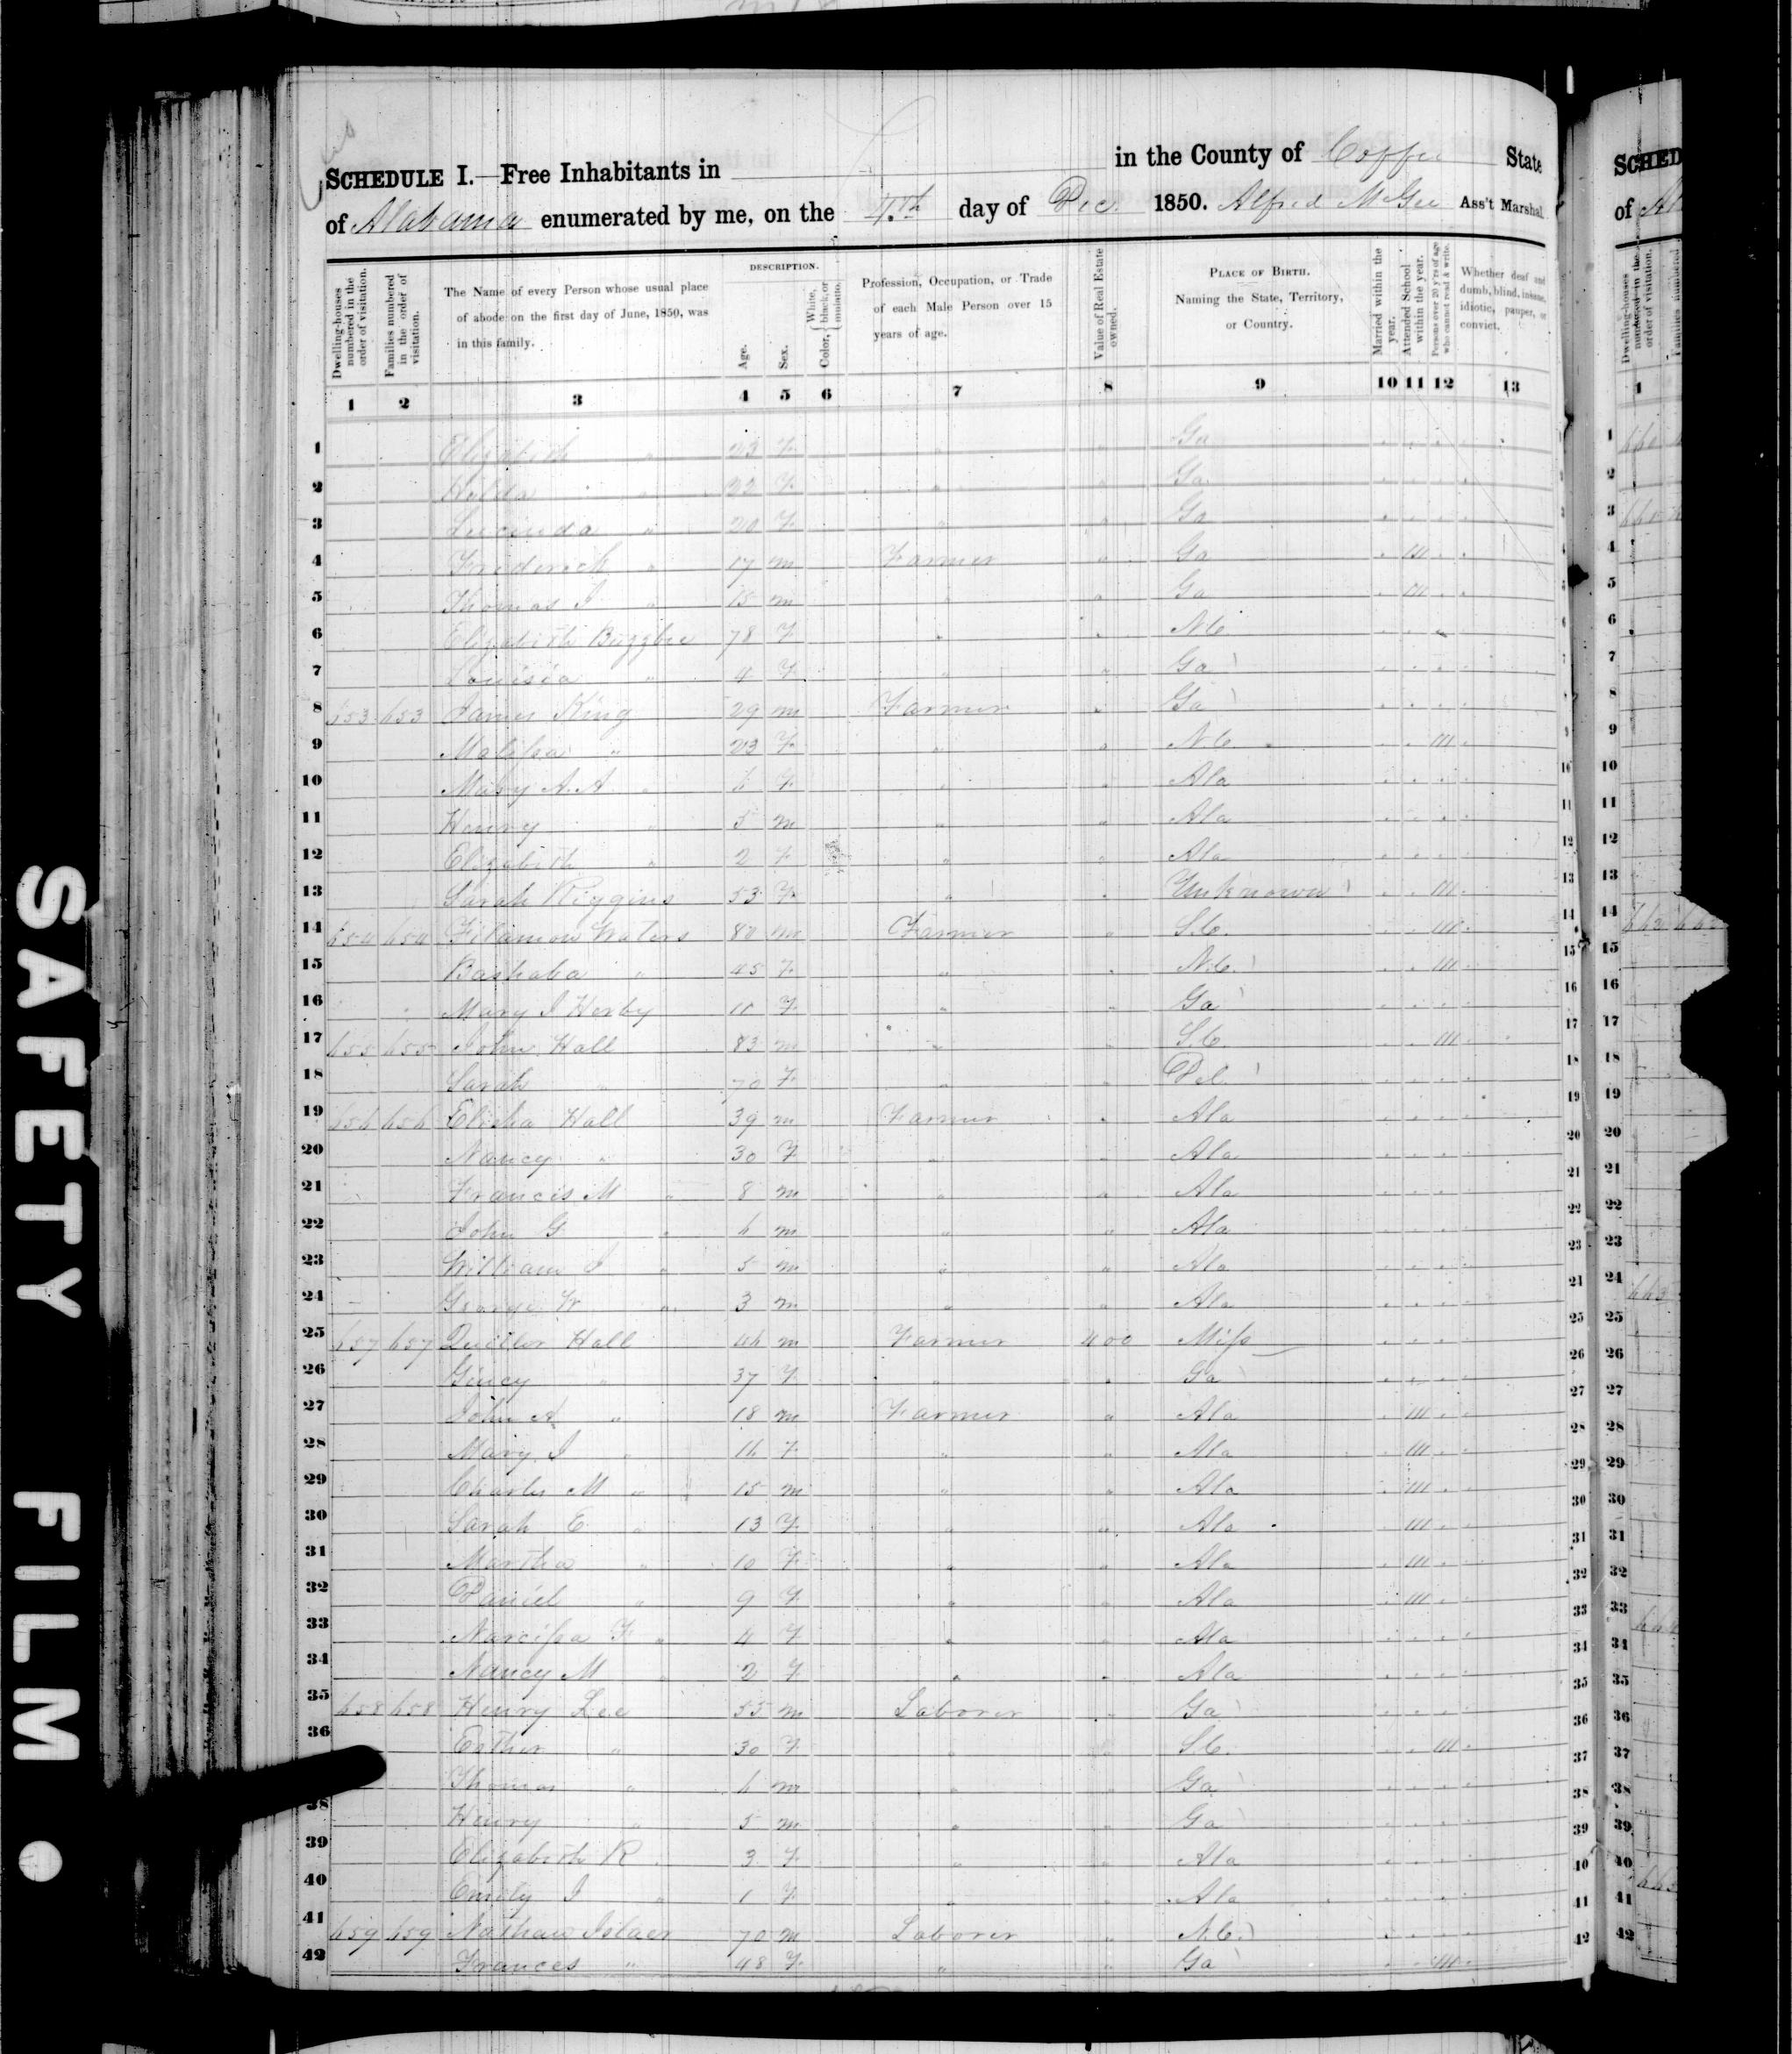 SCHEDULE I.—Free Inhabitants in in the County of Coffee State
of Alabama enumerated by me, on the day of Dec. 1850. Alfred McGee Ass't Marshal
Dwelling-houses numbered in the order of visitation.
Families numbered in the order of visitation.
The Name of every Person whose usual place of abode on the first day of June, 1850, was in this family.
DESCRIPTION.
Age.
Sex.
Color, { White, black, or mulatto.
Profession, Occupation, or Trade of each Male Person over 15 years of age.
Value of Real Estate owned.
PLACE OF BIRTH.
Naming the State, Territory, or Country.
Married within the year.
Attended School within the year.
Persons over 20 y'rs of age who cannot read & write.
Whether deaf and dumb, blind, insane, idiotic, pauper, or convict.
1 2 3 4 5 6 7 8 9 10 11 12 13
1 Elizabeth " 23 F " Ga
2 22 F " Ga
3 Lucinda " 20 F " Ga
4 Frederick " 17 m Farmer " Ga
5 Thomas J " 15 m " Ga
6 Elizabeth Buzzbee 78 F " N.C
7 Louisia " 4 F " Ga
8 653 653 James King 29 m Farmer " Ga
9 Malissa " 23 F " N.C
10 Mary A. A " 6 F " Ala
11 Henry " 5 m " Ala
12 Elizabeth " 2 F " Ala
13 Sarah Riggins 53 F " Unknown
14 654 654 Filamon Waters 80 m Farmer " S.C.
15 Bashaba " 45 F " N.C.
16 Mary J Herby 11 F " Ga
17 655 655 John Hall 83 m " S.C
18 Sarah " 70 F " Del
19 656 656 Elisha Hall 39 m Farmer " Ala
20 Nancy " 30 F " Ala
21 Francis M " 8 m " Ala
22 John G " 6 m " Ala
23 William J " 5 m " Ala
24 George W " 3 m " Ala
25 657 657 Hall 46 m Farmer 400 Miss
26 Gincy " 37 F " Ga
27 John A " 18 m Farmer " Ala
28 Mary J " 16 F " Ala
29 Charles M " 15 m " Ala
30 Sarah E " 13 F " Ala
31 Martha " 10 F " Ala
32 Daniel " 9 F " Ala
33 Narcissa F " 4 F " Ala
34 Nancy M " 2 F " Ala
35 658 658 Henry Lee 55 m Laborer " Ga
36 Esther " 30 F " S.C.
Thomas " 6 m " Ga
38 Henry " 5 m " Ga
39 Elizabeth R " 3 F " Ala
40 Emily J " 1 F " Ala
41 659 659 Nathan 70 m Laborer " N.C.
42 Frances " 48 F " Ga
SAFETY FILM